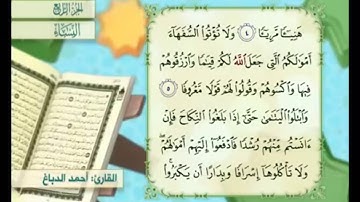 الجزء الرابع
النساء
هَنِيـًٔا مَّرِيـًٔا ٤ وَلَا تُؤْتُوا۟ ٱلسُّفَهَآءَ
أَمْوَٰلَكُمُ ٱلَّتِى جَعَلَ ٱللَّهُ لَكُمْ قِيَـٰمًا وَٱرْزُقُوهُمْ
فِيهَا وَٱكْسُوهُمْ وَقُولُوا۟ لَهُمْ قَوْلًا مَّعْرُوفًا ٥
وَٱبْتَلُوا۟ ٱلْيَتَـٰمَىٰ حَتَّىٰٓ إِذَا بَلَغُوا۟ ٱلنِّكَاحَ فَإِنْ
ءَانَسْتُم مِّنْهُمْ رُشْدًا فَٱدْفَعُوٓا۟ إِلَيْهِمْ أَمْوَٰلَهُمْ ۖ
وَلَا تَأْكُلُوهَآ إِسْرَافًا وَبِدَارًا أَن يَكْبَرُوا۟ ۚ
القارئ: أحمد الدباغ